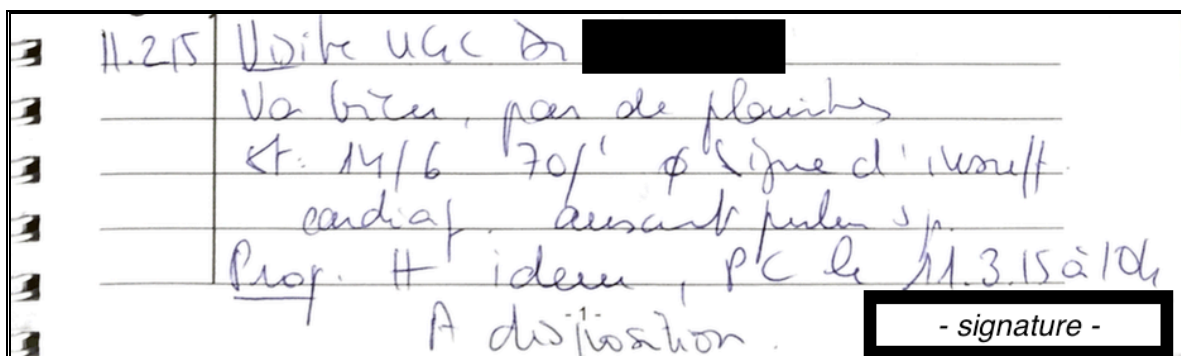 11.2.15 Visite UGC Dr
Va bien, pas de plaintes
St: 14/6 70/' ø signe d'insuff.
cardiaq. auscult pulm sp.
Prop. tt idem, PC le 11.3.15 à 10h
A disposition.
- 1 -
- signature -